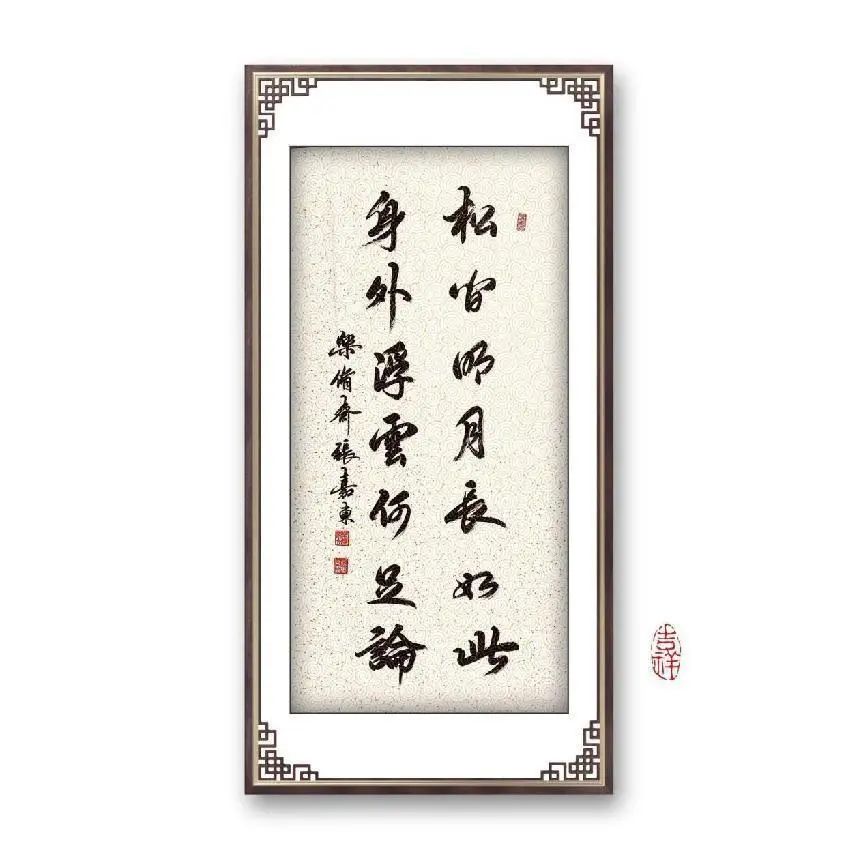 松間明月長如此
身外浮雲何足論
樂脩齋張嘉東
吉祥